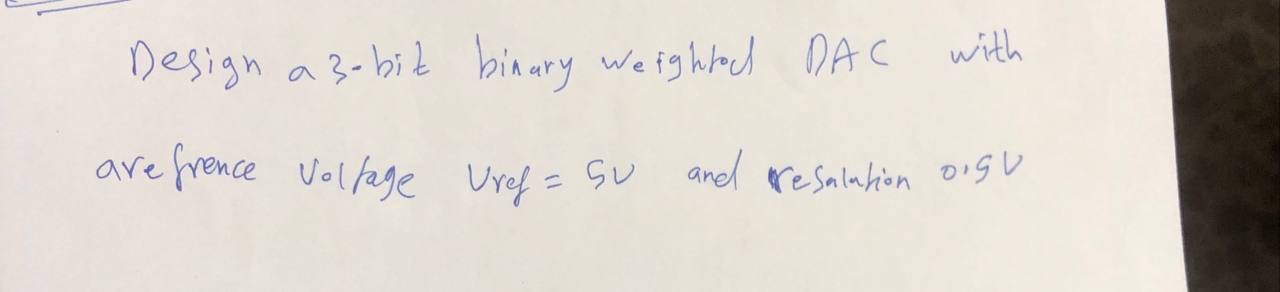 Design a 3-bit binary weighted DAC with
a refrence voltage Vref = 5V and resalution 0.5V